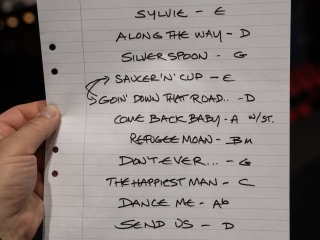 SYLVIE - E
ALONG THE WAY - D
SILVER SPOON - G
SAUCER 'N' CUP - E
GOIN' DOWN THAT ROAD.. - D
COME BACK BABY - A W/ST.
REFUGEE MOAN - Bm
DON'T EVER... - G
THE HAPPIEST MAN - C
DANCE ME - Ab
SEND US - D